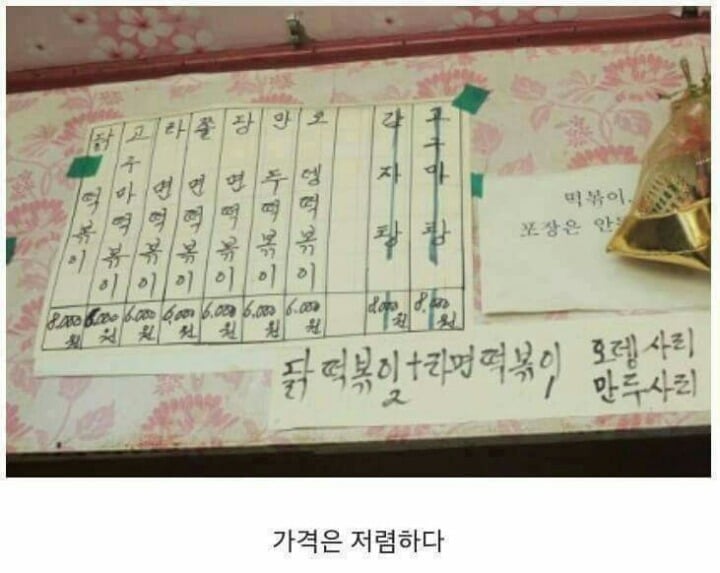 닭떡볶이 8.000원
고구마떡볶이 6.000원
라면떡볶이 6.000원
쫄면떡볶이 6.000원
당면떡볶이 6.000원
만두떡볶이 6.000원
오뎅떡볶이 6.000원
감자탕 8.000원
고구마탕 8.000원
떡볶이.
포장은
닭떡볶이2+라면떡볶이1
오뎅사리
만두사리
가격은 저렴하다